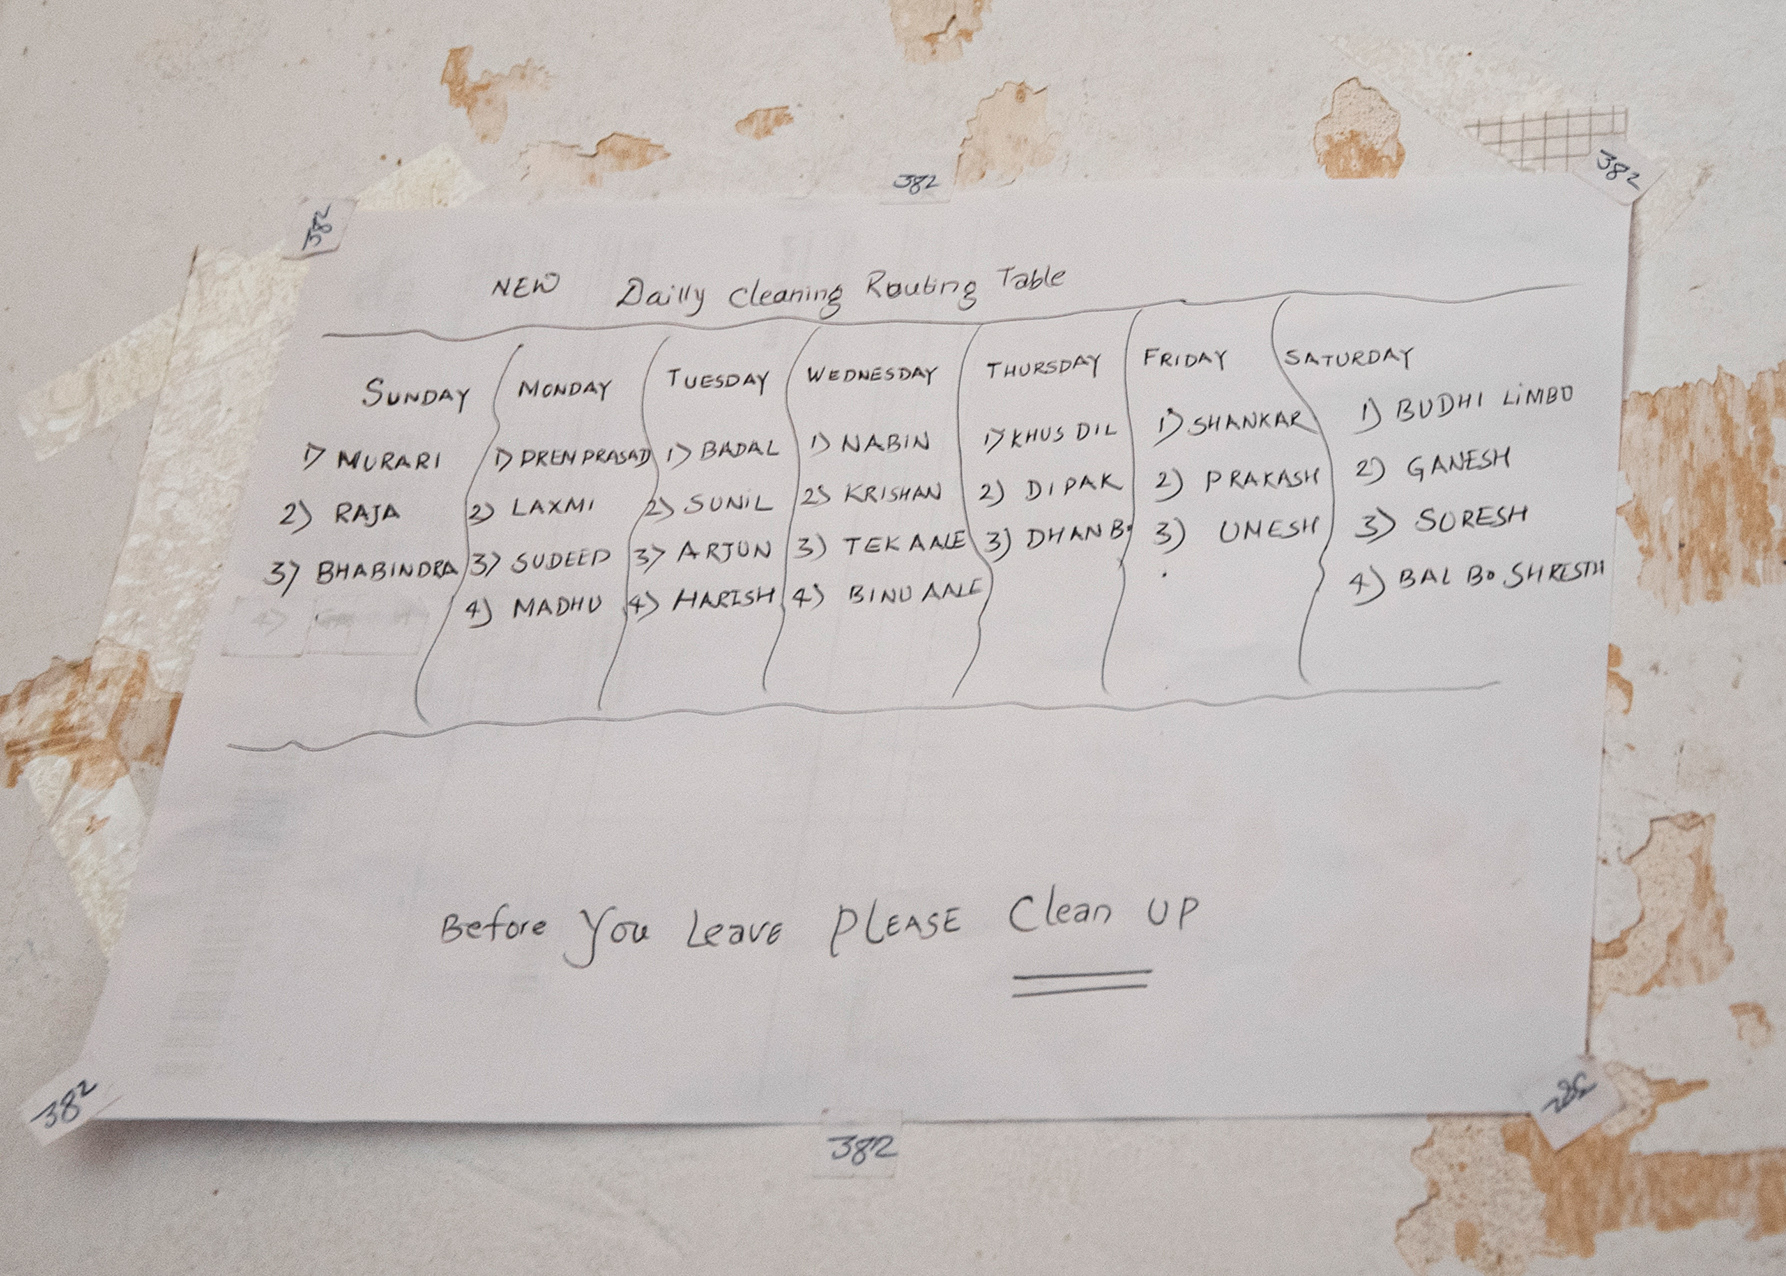 382
382
382
NEW Dailly Cleaning Routing Table
SUNDAY MONDAY TUESDAY WEDNESDAY THURSDAY FRIDAY SATURDAY
1) MURARI 1) PREN PRASAD 1) BADAL 1) NABIN 1) KHUS DIL 1) SHANKAR 1) BUDHI LiMBO
2) RAJA 2) LAXMI 2) SUNIL 2) KRISHAN 2) DIPAK 2) PRAKASH 2) GANESH
3) BHABINDRA 3) SUDEEP 3) ARJUN 3) TEK AALE 3) DHAN B. 3) UMESH 3) SURESH
4) MADHU 4) HARISH 4) BINU AALE 4) BAL Bo SHRESTH
Before You Leave PLEASE Clean UP
382
382
382